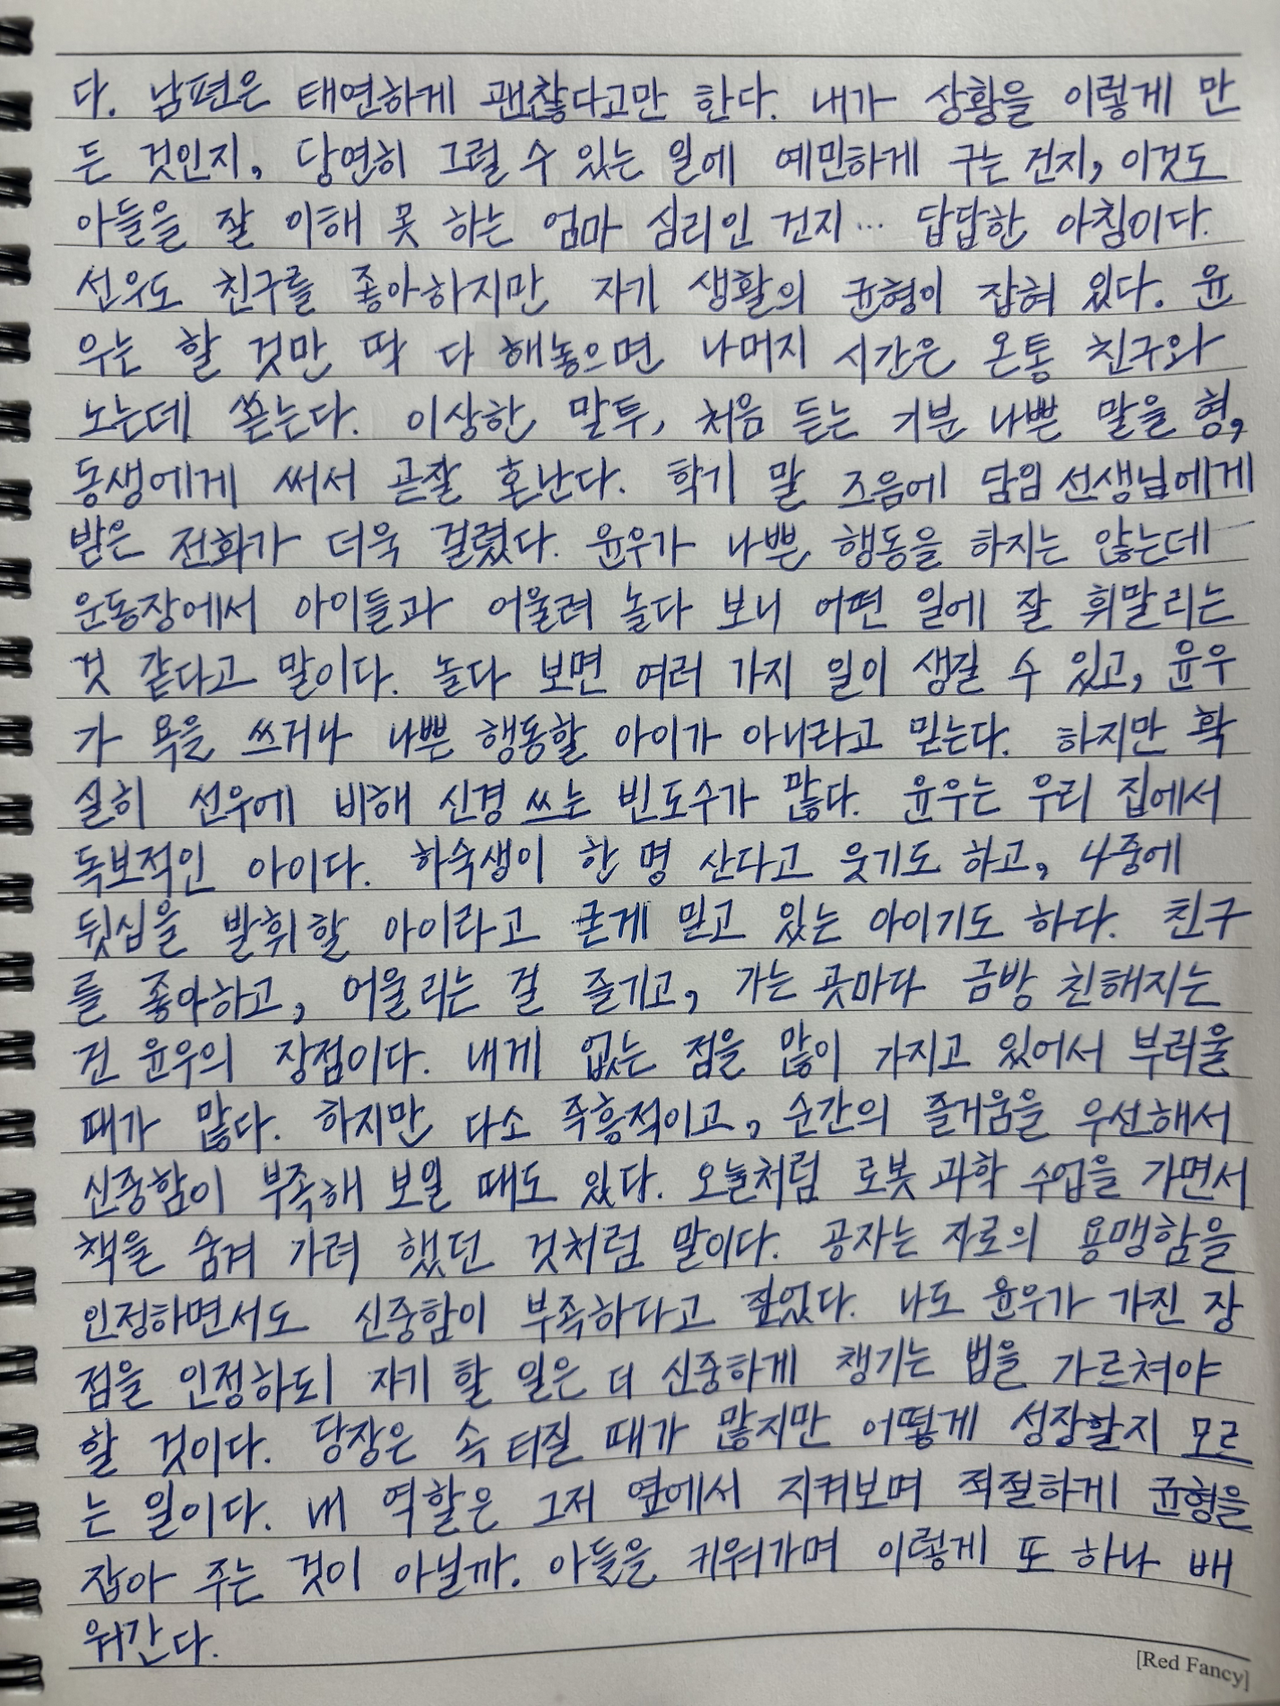 다. 남편은 태연하게 괜찮다고만 한다. 내가 상황을 이렇게 만
든 것인지, 당연히 그럴 수 있는 일에 예민하게 구는 건지, 이것도
아들을 잘 이해 못 하는 엄마 심리인 건지… 답답한 아침이다.
선우도 친구를 좋아하지만 자기 생활의 균형이 잡혀 있다. 윤
우는 할 것만 딱 다 해놓으면 나머지 시간은 온통 친구와
노는데 쏟는다. 이상한 말투, 처음 듣는 기분 나쁜 말을 형,
동생에게 써서 곧잘 혼난다. 학기 말 즈음에 담임 선생님에게
받은 전화가 더욱 걸렸다. 윤우가 나쁜 행동을 하지는 않는데
운동장에서 아이들과 어울려 놀다 보니 어떤 일에 잘 휘말리는
것 같다고 말이다. 놀다 보면 여러 가지 일이 생길 수 있고, 윤우
가 욕을 쓰거나 나쁜 행동할 아이가 아니라고 믿는다. 하지만 확
실히 선우에 비해 신경 쓰는 빈도수가 많다. 윤우는 우리 집에서
독보적인 아이다. 하숙생이 한 명 산다고 웃기도 하고, 4중에
뒷심을 발휘할 아이라고 굳게 믿고 있는 아이기도 하다. 친구
를 좋아하고, 어울리는 걸 즐기고, 가는 곳마다 금방 친해지는
건 윤우의 장점이다. 내게 없는 점을 많이 가지고 있어서 부러울
때가 많다. 하지만 다소 즉흥적이고, 순간의 즐거움을 우선해서
신중함이 부족해 보일 때도 있다. 오늘처럼 로봇 과학 수업을 가면서
책을 숨겨 가려 했던 것처럼 말이다. 공자는 자로의 용맹함을
인정하면서도 신중함이 부족하다고 짚었다. 나도 윤우가 가진 장
점을 인정하되 자기 할 일은 더 신중하게 챙기는 법을 가르쳐야
할 것이다. 당장은 속 터질 때가 많지만 어떻게 성장할지 모르
는 일이다. 내 역할은 그저 옆에서 지켜보며 적절하게 균형을
잡아 주는 것이 아닐까. 아들을 키워가며 이렇게 또 하나 배
워간다.
[Red Fancy]